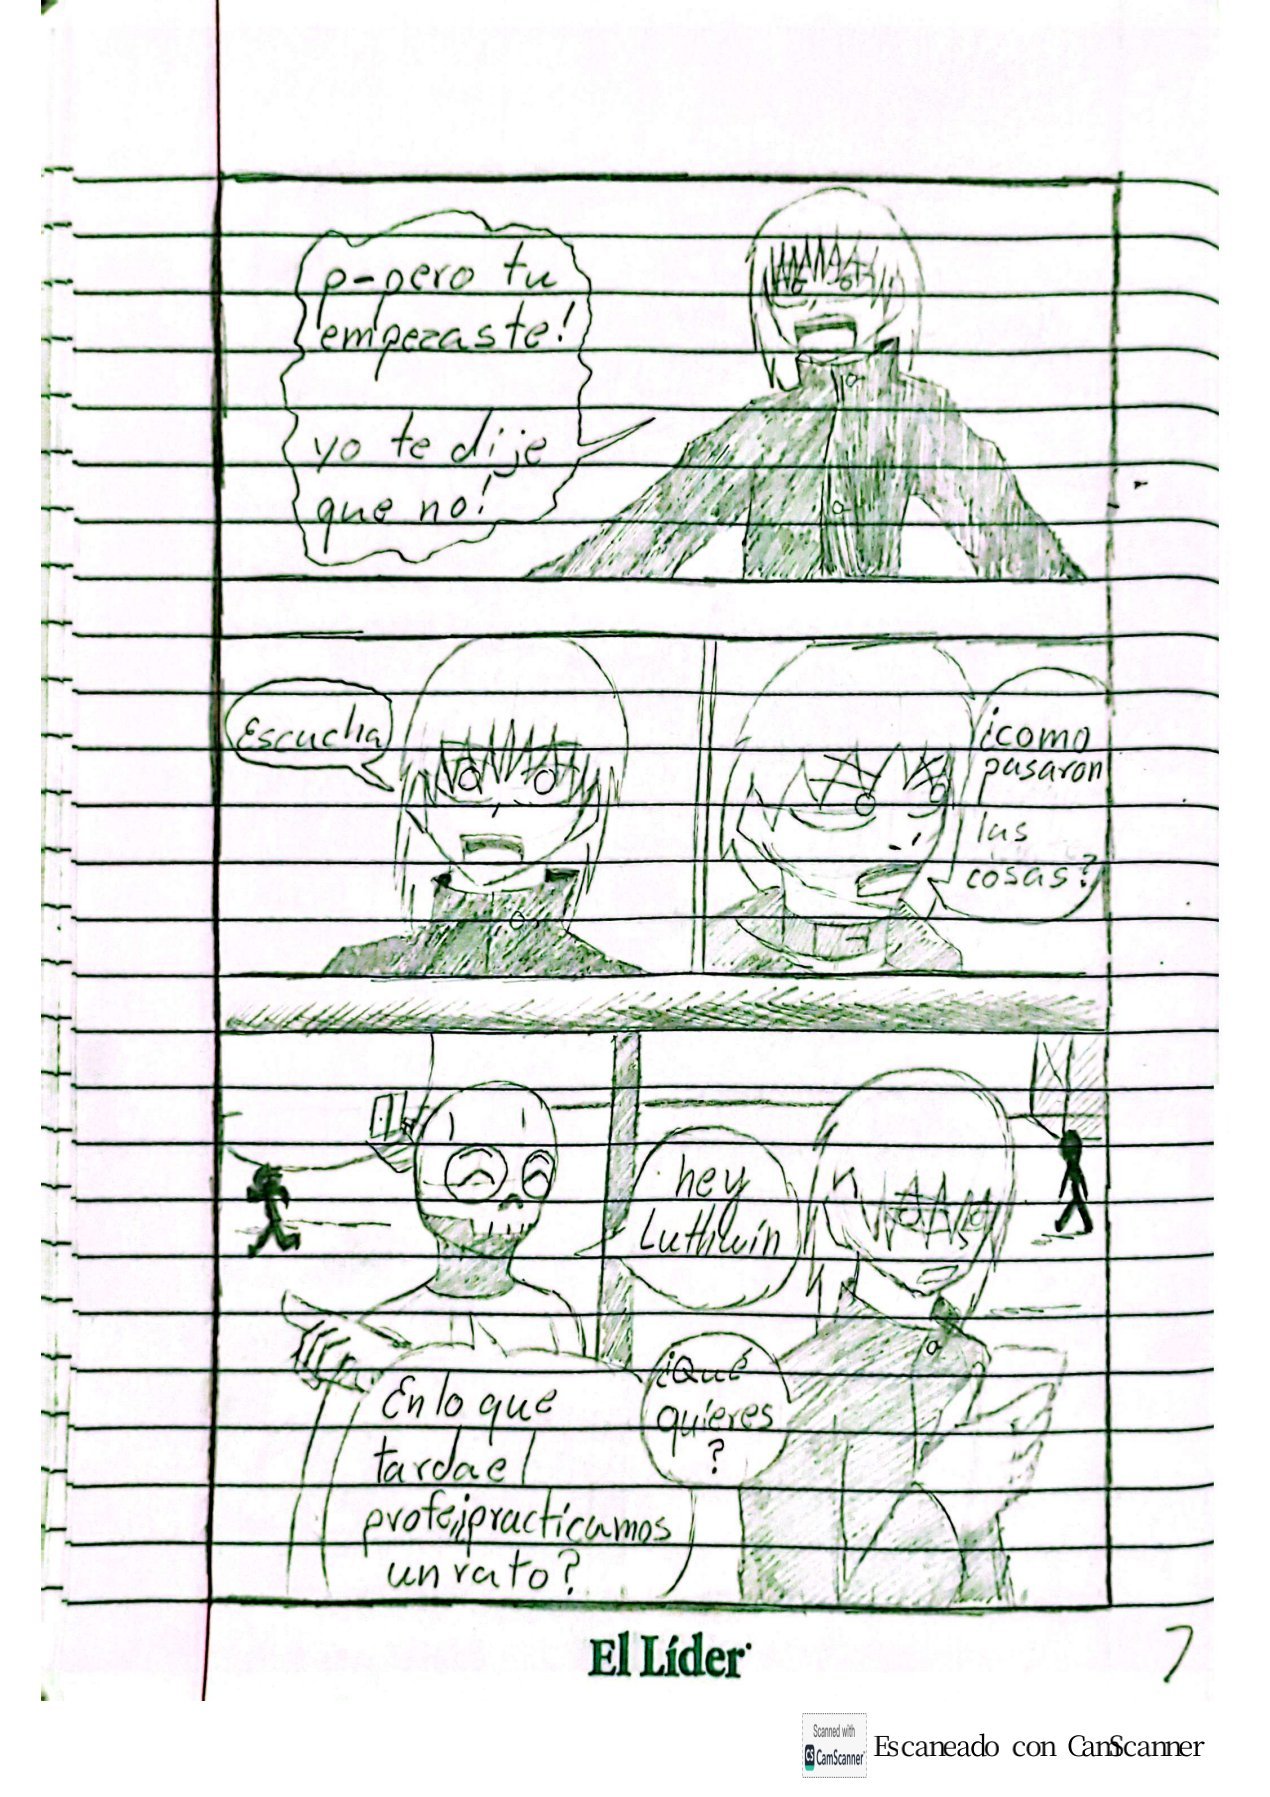 p-pero tu
empezaste!
yo te dije
que no!
Escucha
¿como
pasaron
las
cosas?
hey
Luthwin
¿Qué
quieres
?
En lo que
tarda el
profe ¿practicamos
un rato?
El Líder
7
Scanned with
CS CamScanner
Escaneado con CamScanner